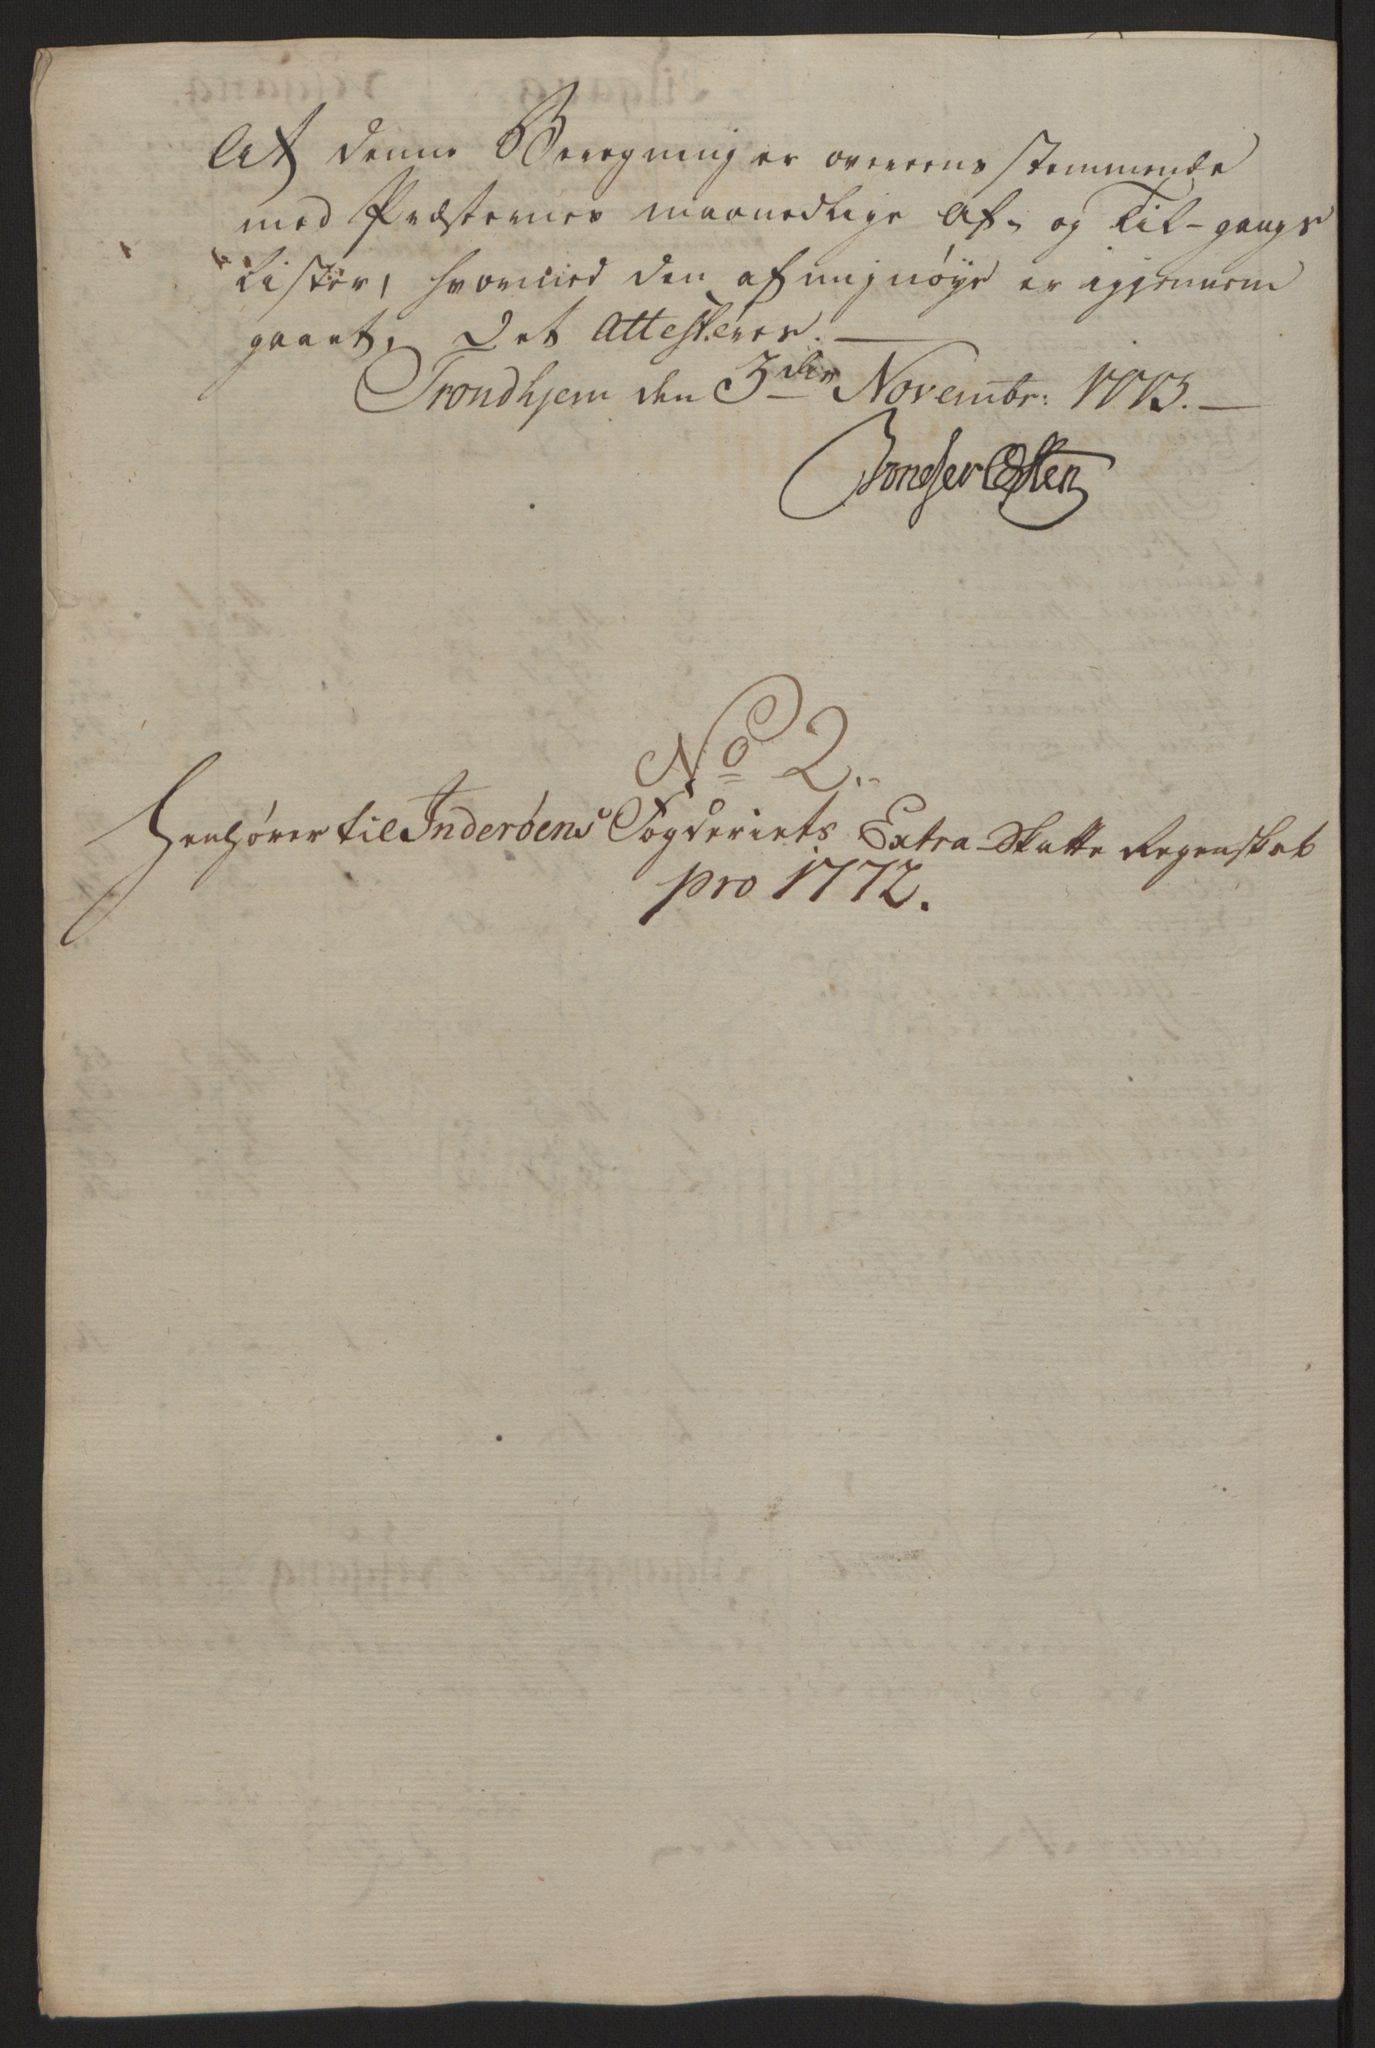 At denne Beregning er overeens stemmende
med Præsternes maanedlige Af- og Til-gangs
Lister, hvormed den af mig nøye er igjennem
gaaet, Det Attesteres.
Trondhjem den 3die Novembr: 1773.
No 2.
Henhører til Inderøens Fogderiets Extra Skatte Regenskab
pro 1772.